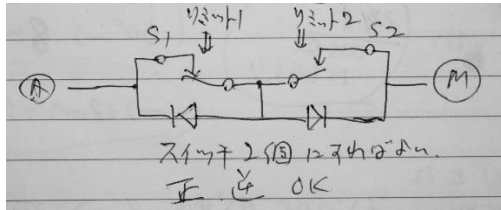 リミット1 リミット2
S1 S2
A M
スイッチ2個にすればよい.
正 逆 OK